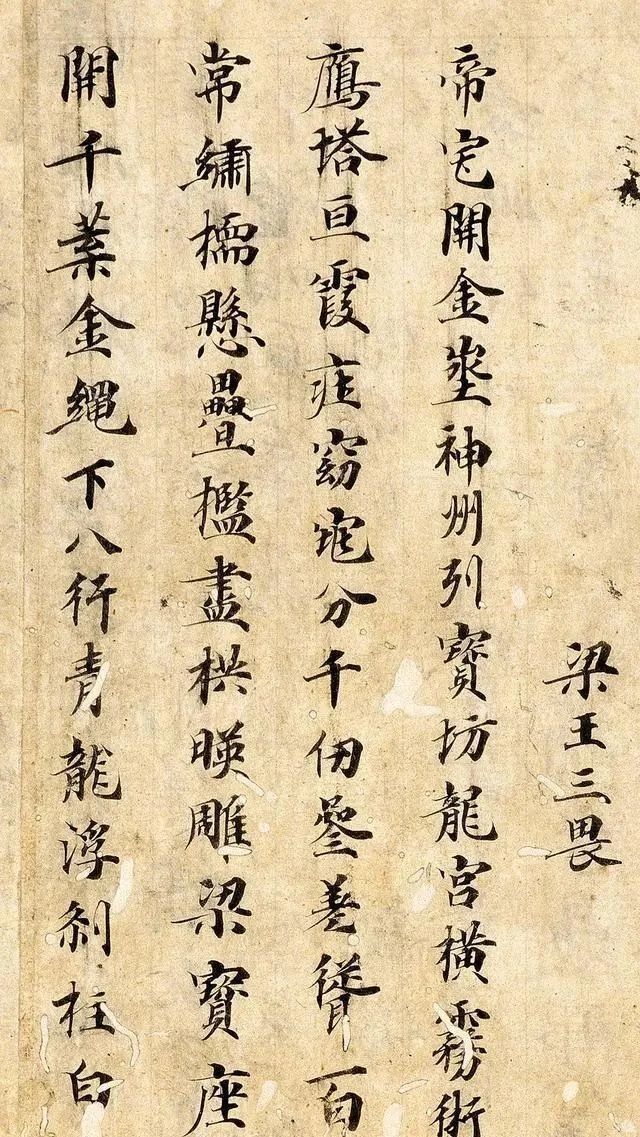 梁王三畏
帝宅開金埊神州列寶坊龍宮橫霧術
鴈塔亘霞庄窈窕分千仞參差聳百
常繡檽懸疊檻畫栱暎雕梁寶座
開千葉金繩下八行青龍浮剎柱白